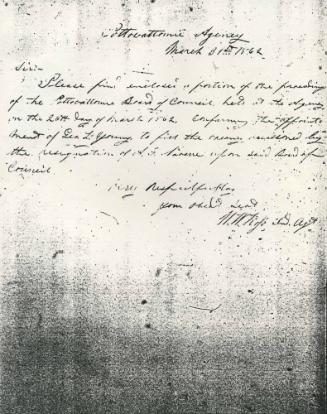 Pottowattomie Agency
March 31st 1862
Sir:
Please find enclosed a portion of the proceeding
of the Pottowattomie Board of Council held at the Agency
on the 28th day of March 1862. Confirming the appoint-
ment of Geo L. Young to fill the vacancy occasioned by
the resignation of A. F. Navarre upon said Board of
Council
Very Respectfully
your obed. Servt
W. W. Ross Ind. Agt